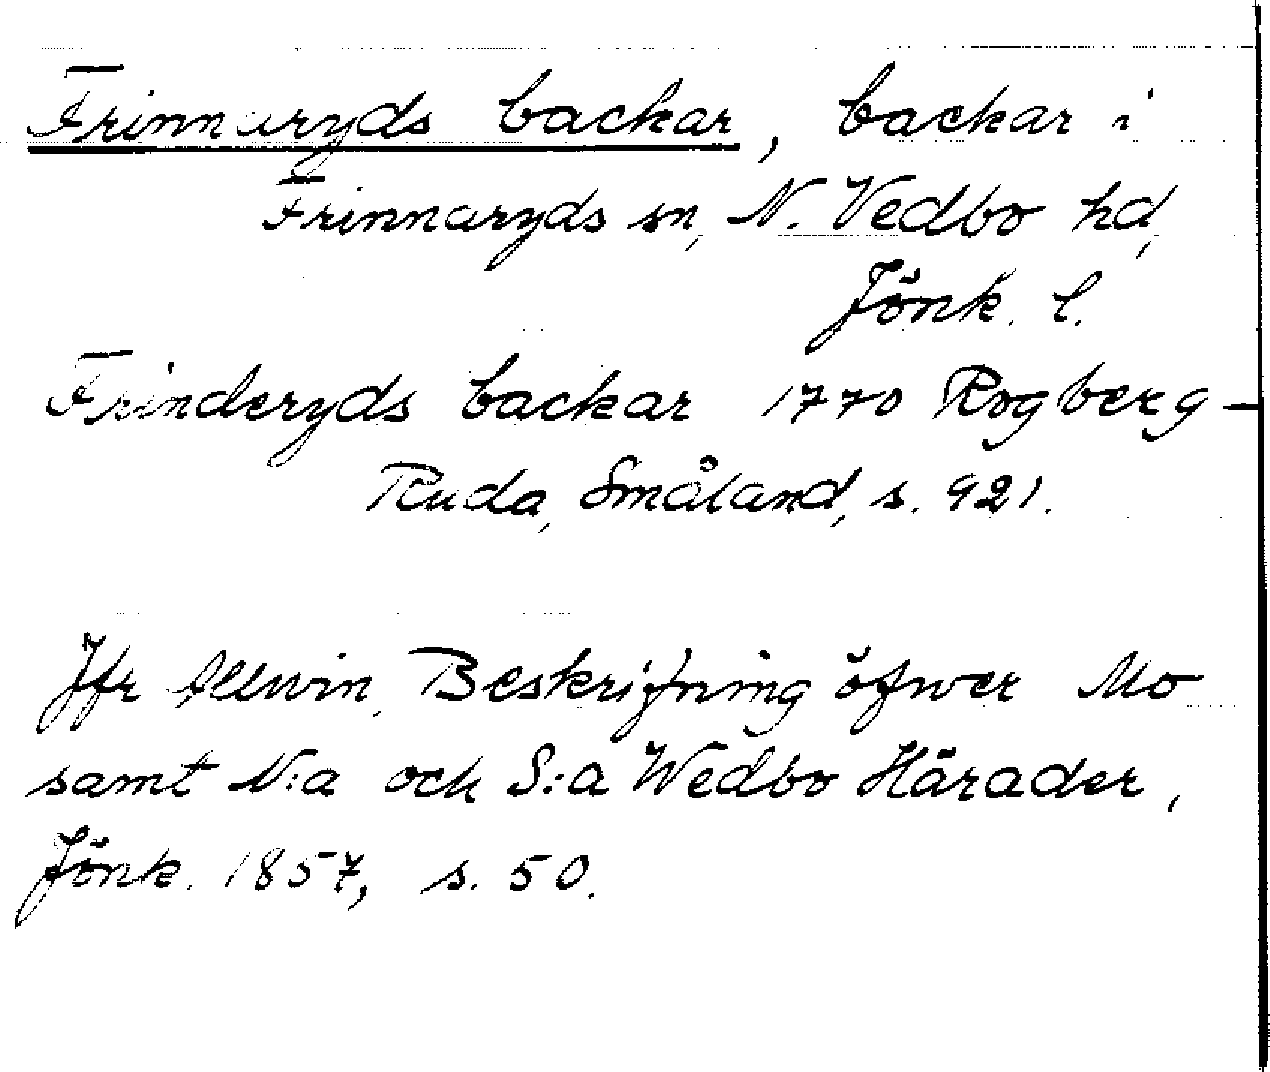 Frinnaryds backar, backar i
Frinnaryds sn, N. Vedbo hd,
Jönk. l.
Frinderyds backar 1770 Rogberg-
Ruda, Småland, s. 921.
Jfr Allwin, Beskrifning öfwer Mo
samt N:a och S:a Wedbo Härader,
Jönk. 1857, s. 50.